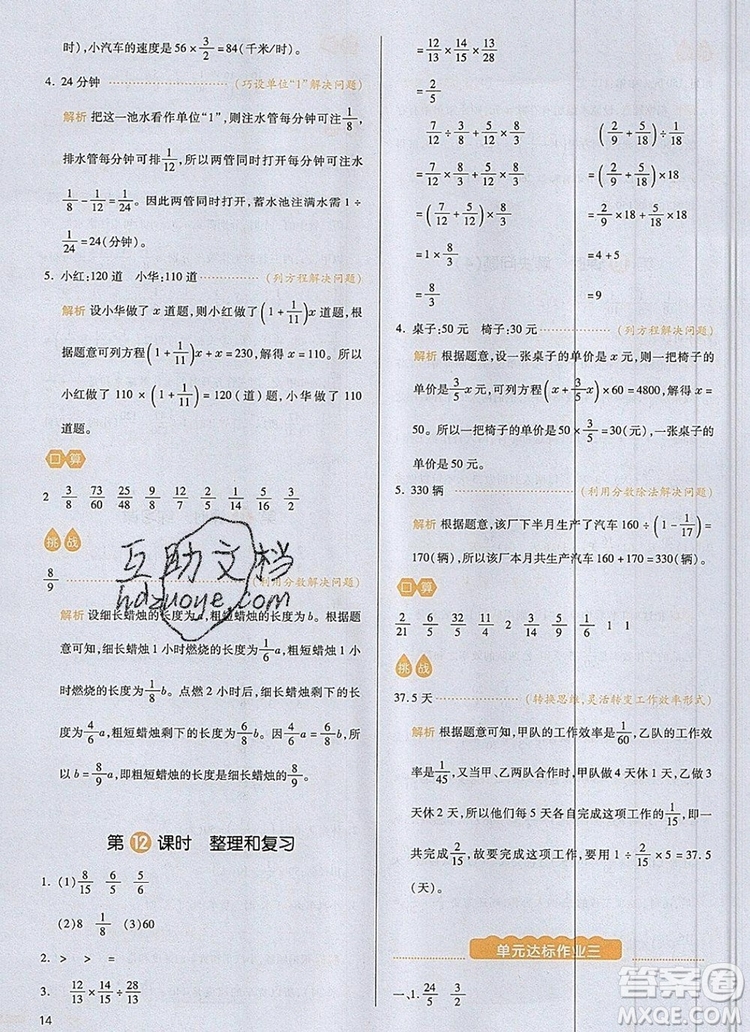 时),小汽车的速度是56×3/2=84(千米/时)。
4. 24分钟 (巧设单位“1”解决问题)
解析 把这一池水看作单位“1”,则注水管每分钟可注1/8,
排水管每分钟可排1/12,所以两管同时打开每分钟可注水
1/8-1/12=1/24。因此两管同时打开,蓄水池注满水需1÷
1/24=24(分钟)。
5. 小红:120道 小华:110道 (列方程解决问题)
解析 设小华做了x道题,则小红做了(1+1/11)x道题,根
据题意可列方程(1+1/11)x+x=230,解得x=110。所以
小红做了110×(1+1/11)=120(道)题,小华做了110
道题。
口算
2 3/8 73/60
挑战
8/9 (利用分数解决问题)
解析 设细长蜡烛的长度为a,粗短蜡烛的长度为b。根据题
意可知,细长蜡烛1小时燃烧的长度为1/6a,粗短蜡烛1小时
燃烧的长度为1/8b。点燃2小时后,细长蜡烛剩下的长度
为4/6a,粗短蜡烛剩下的长度为6/8b,即4/6a=6/8b。所
以8/9a=b,即粗短蜡烛的长度是细长蜡烛长度的8/9。
第12课时 整理和复习
1. (1)8/15 6/5 5/6
(2)8 1/8 (3)60
2. > > = >
3. 12/13×14/15÷28/13
14
=12/13×14/15×13/28
=2/5
7/12÷3/8+5/12×8/3
=7/12×8/3+5/12×8/3
=(7/12+5/12)×8/3
=1×8/3
=8/3
(2/9+5/18)÷1/18
=(2/9+5/18)×18
=2/9×18+5/18×18
=4+5
=9
4. 桌子:50元 椅子:30元 (列方程解决问题)
解析 根据题意,设一张桌子的单价是x元,则一把椅子的
单价是3/5x元,可列方程(x+3/5x)×60=4800,解得x=
50。所以一把椅子的单价是50×3/5=30(元),一张桌子的
单价是50元。
5. 330辆 (利用分数除法解决问题)
解析 根据题意,该厂下半月生产了汽车160÷(1-1/17)=
170(辆),所以该厂本月共生产汽车160+170=330(辆)。
口算
2/21 6/5 32/45 5/11 1/4 2/3 1 13/15 1/5
挑战
37.5天 (转换思维,灵活转变工作效率形式)
解析 根据题意可知,甲队的工作效率是1/60,乙队的工作效
率是1/45,又当甲、乙两队合作时,甲队做4天休3天,乙队做
5天休2天,一周7天后各自完成这项工作的1/15,1/15,一
共完成2/15,故要完成这项工作,需要1÷2/15×5=37.5
(天)。
单元达标作业三
一、1. 24/5 3/2
互助文档
hdzuoye.com
答案圈
MXQE.COM